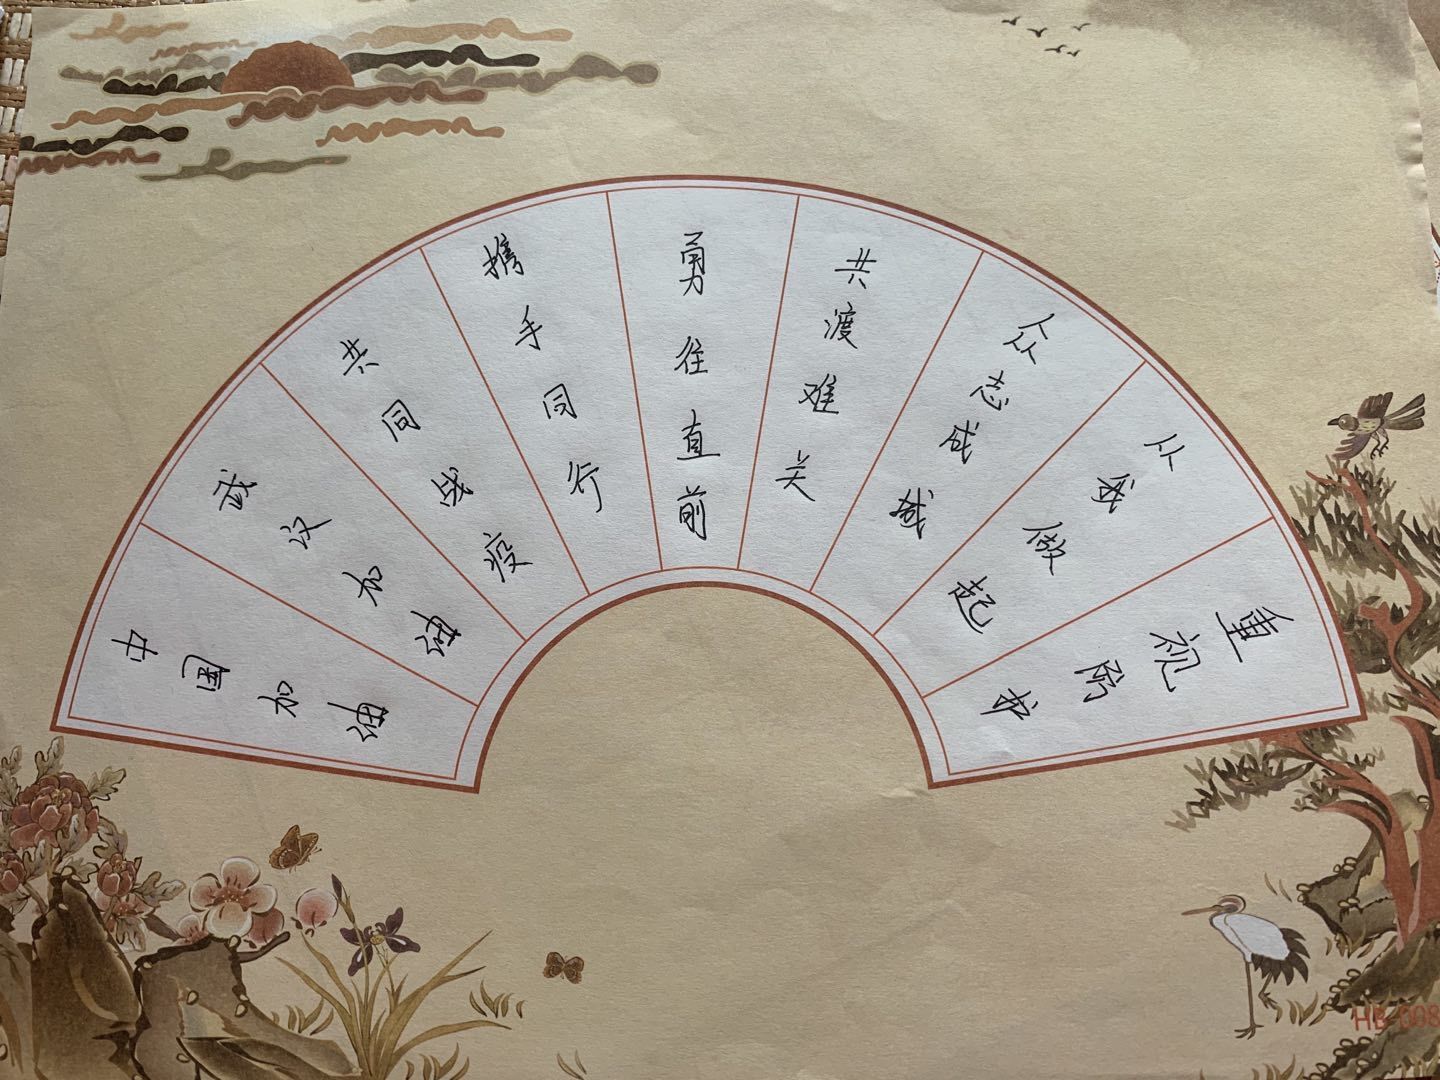 重视防
从我做起
众志成城
共渡难关
勇往直前
携手同行
共同战疫
武汉加油
中国加油
HB-008